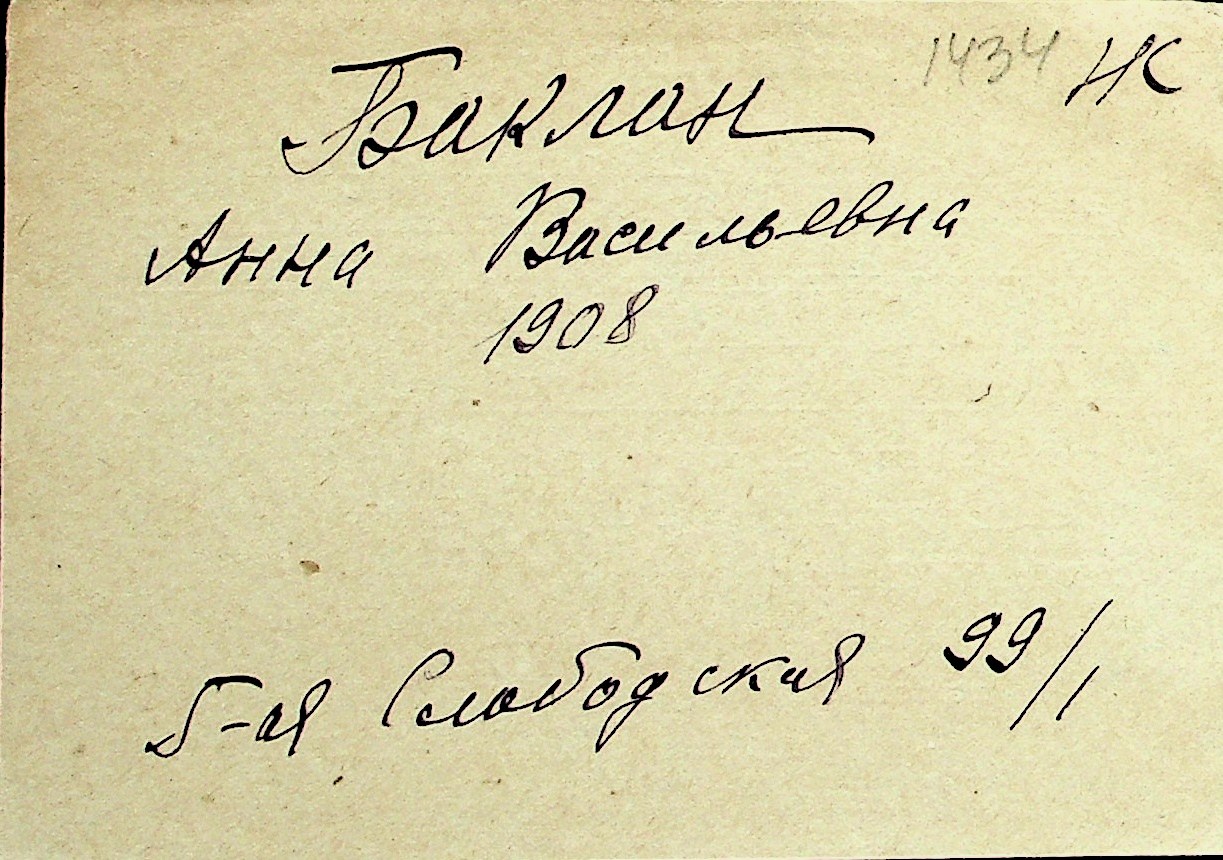 1434 НК
Баклан
Анна Васильевна
1908
5-ая Слободская 99/1